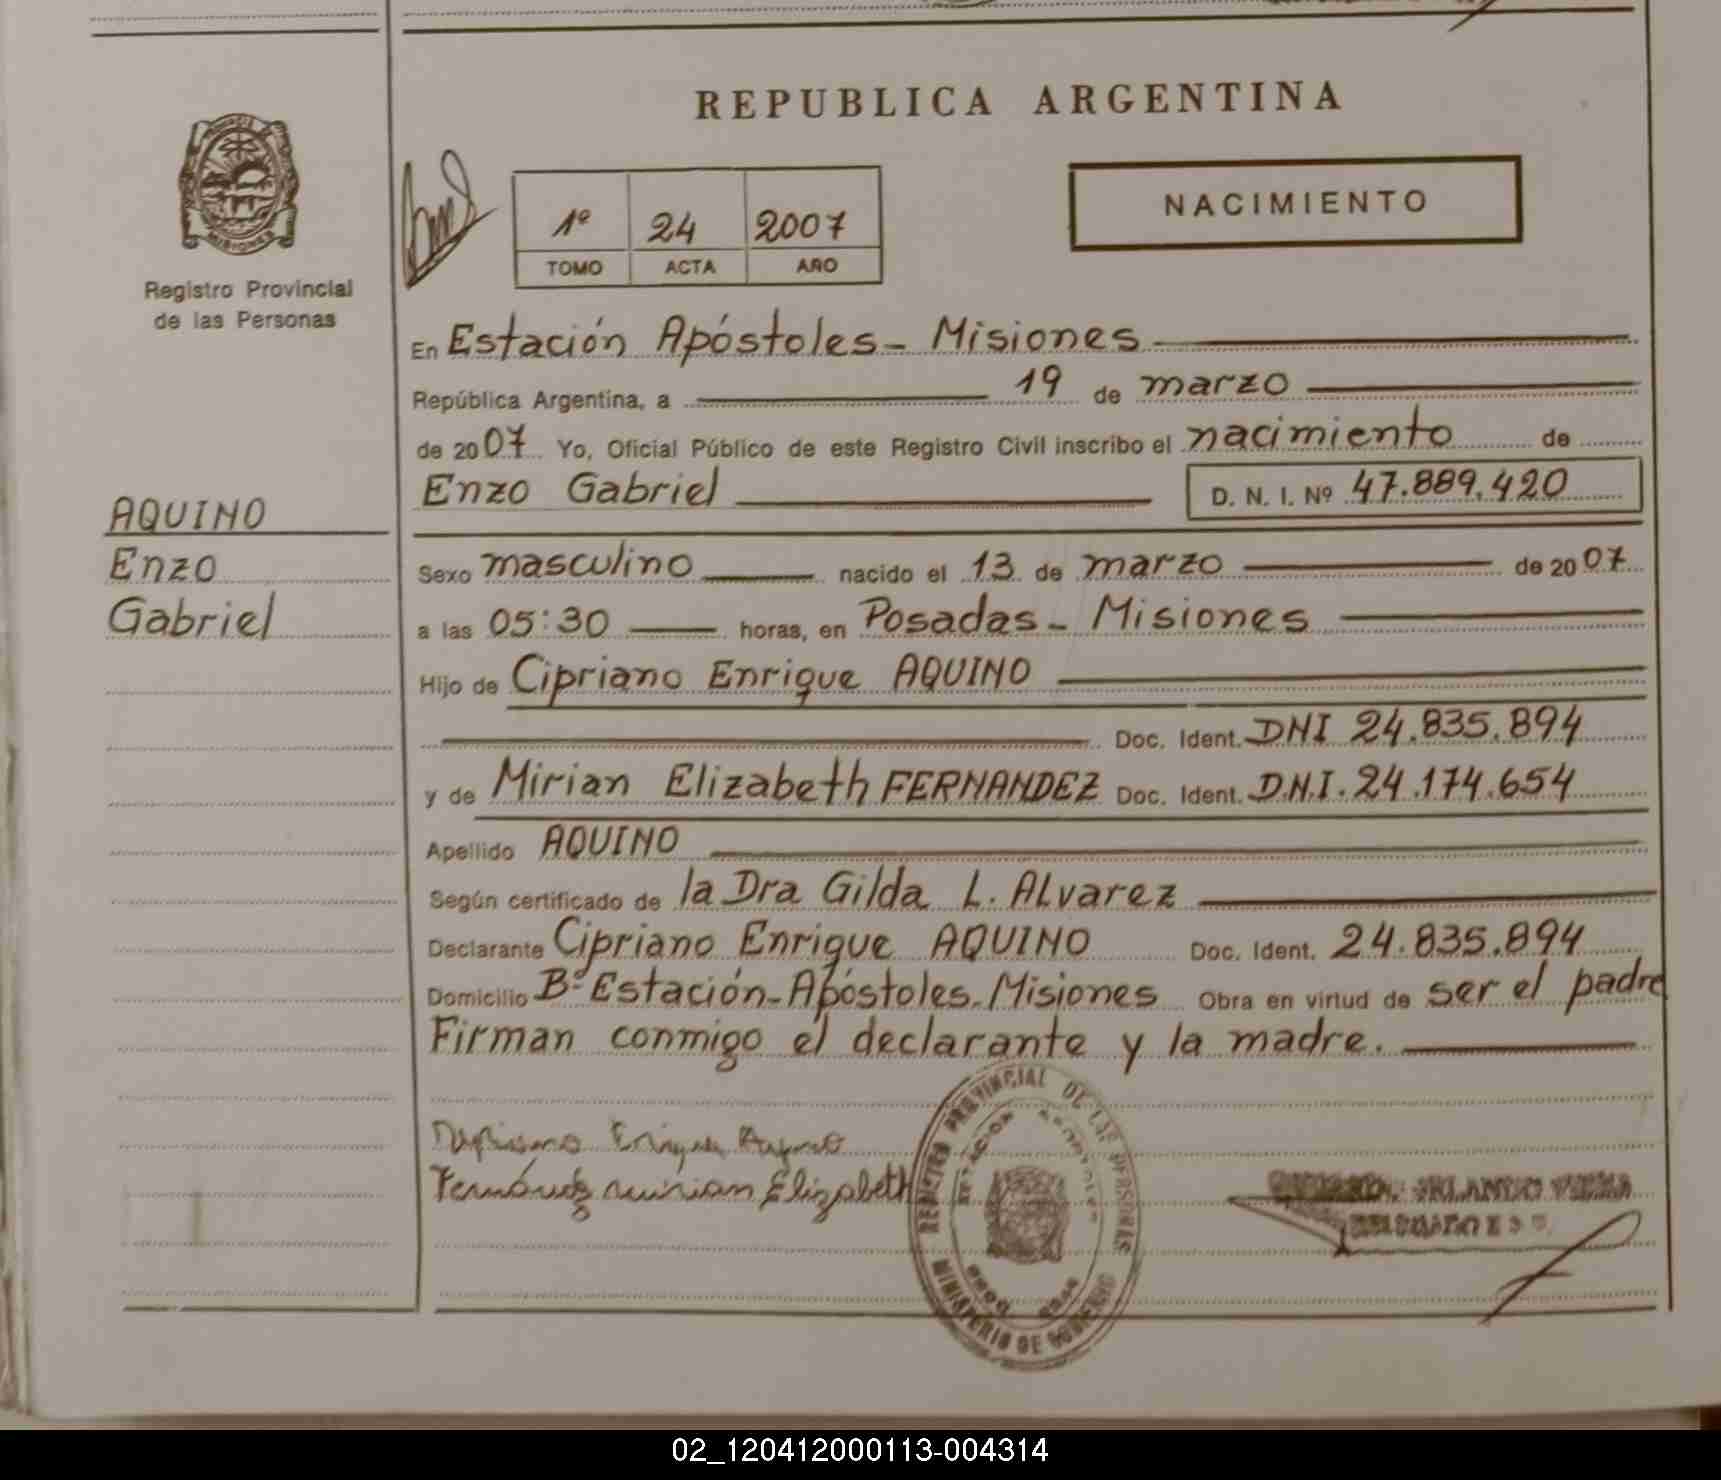 REPUBLICA ARGENTINA
MISIONES
Registro Provincial
de las Personas
1º 24 2007
TOMO ACTA AÑO
NACIMIENTO
En Estación Apóstoles - Misiones
República Argentina, a 19 de marzo
de 2007 Yo, Oficial Público de este Registro Civil inscribo el nacimiento de
Enzo Gabriel D. N. I. Nº 47.889.420
AQUINO
Enzo
Gabriel
Sexo masculino nacido el 13 de marzo de 2007
a las 05:30 horas, en Posadas - Misiones
Hijo de Cipriano Enrique AQUINO
Doc. Ident. DNI 24.835.894
y de Mirian Elizabeth FERNANDEZ Doc. Ident. D.N.I. 24.174.654
Apellido AQUINO
Según certificado de la Dra Gilda L. ALvarez
Declarante Cipriano Enrique AQUINO Doc. Ident. 24.835.894
Domicilio Bº Estación - Apóstoles - Misiones Obra en virtud de ser el padre
Firman conmigo el declarante y la madre.
Enrique
Fernández mirian Elizabeth
REGISTRO PROVINCIAL DE LAS PERSONAS
MINISTERIO DE GOBIERNO
ORLANDO
02_120412000113-004314